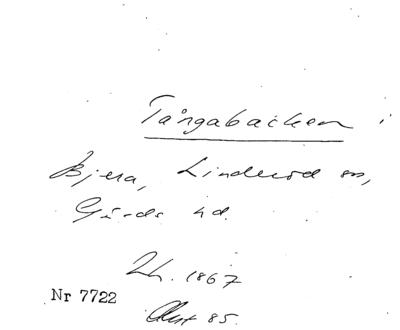 Tångabacken i
Bjera, Linderöd sn,
Gärds hd.
Lh. 1867
Nr 7722
85.